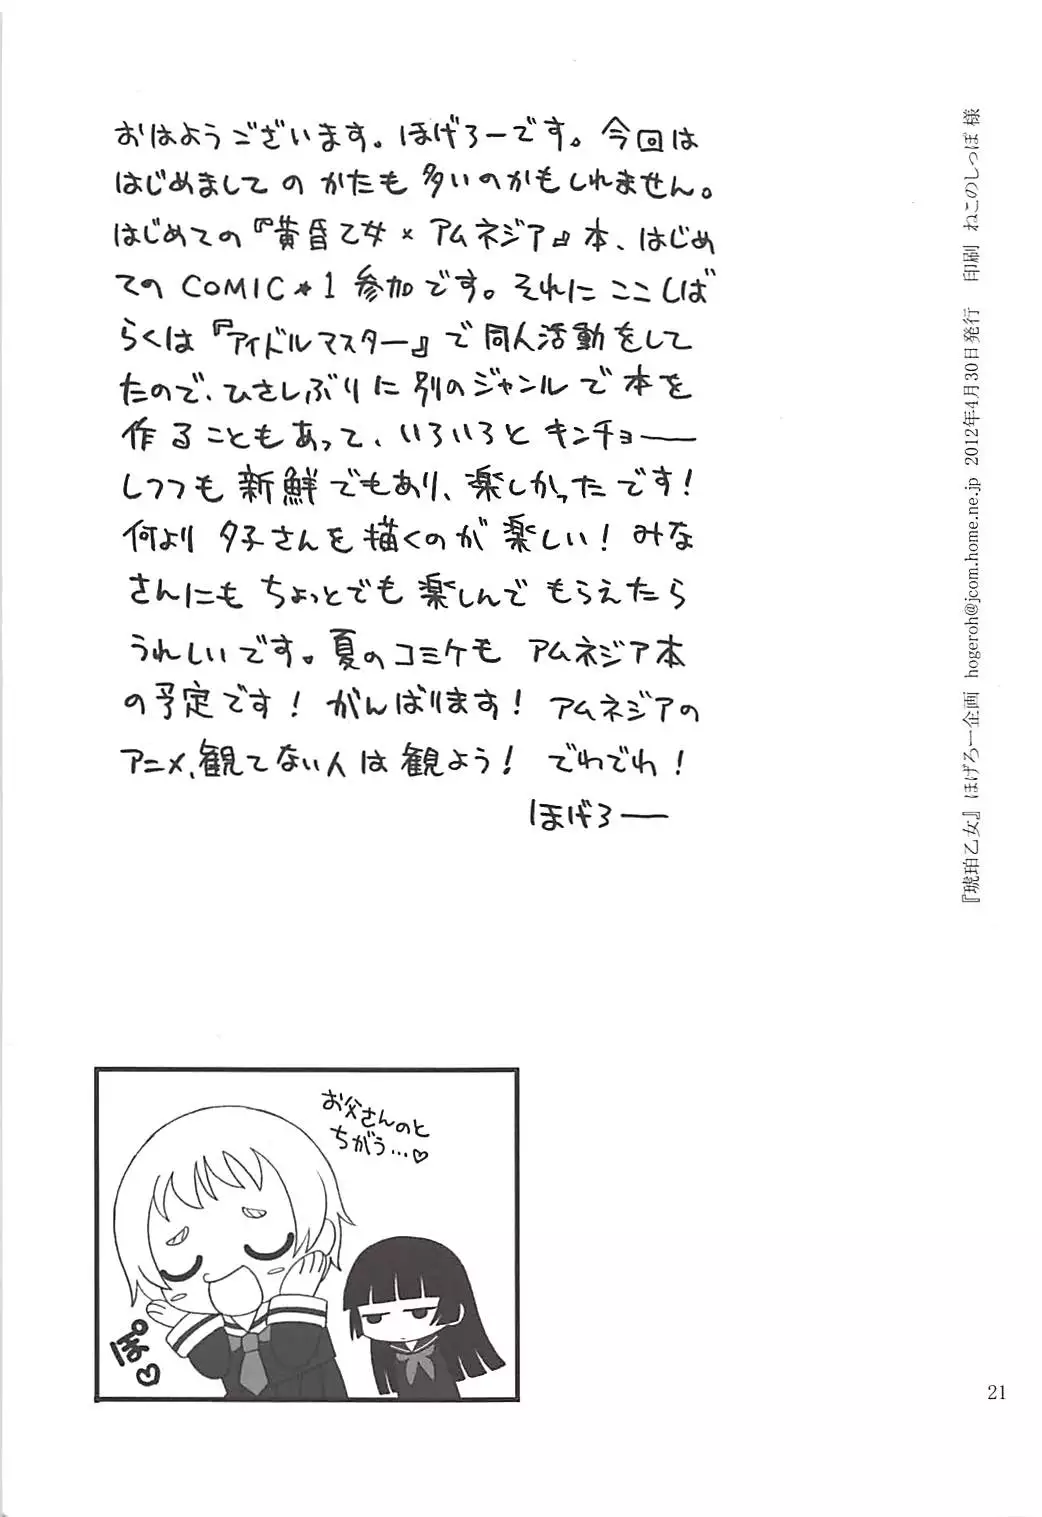 おはようございます。ほげろーです。今回は
はじめましての かたも 多いのかもしれません。
はじめての『黄昏乙女×アムネジア』本、はじめ
ての COMIC★1 参加です。それに ここしば
らくは『アイドルマスター』で 同人活動をして
たので、ひさしぶりに 別のジャンルで 本を
作ることもあって、いろいろと キンチョー
しつつも 新鮮でもあり、楽しかったです!
何より 夕子さんを描くのが 楽しい! みな
さんにも ちょっとでも 楽しんで もらえたら
うれしいです。夏のコミケも アムネジア本
の予定です! がんばります! アムネジアの
アニメ、観てない人は 観よう! でわでわ!
ほげろー
『琥珀乙女』 ほげろー企画 hogeroh@jcom.home.ne.jp 2012年4月30日発行 印刷 ねこのしっぽ 様
お父さんのと
ちがう…♡
ぽ♡
21